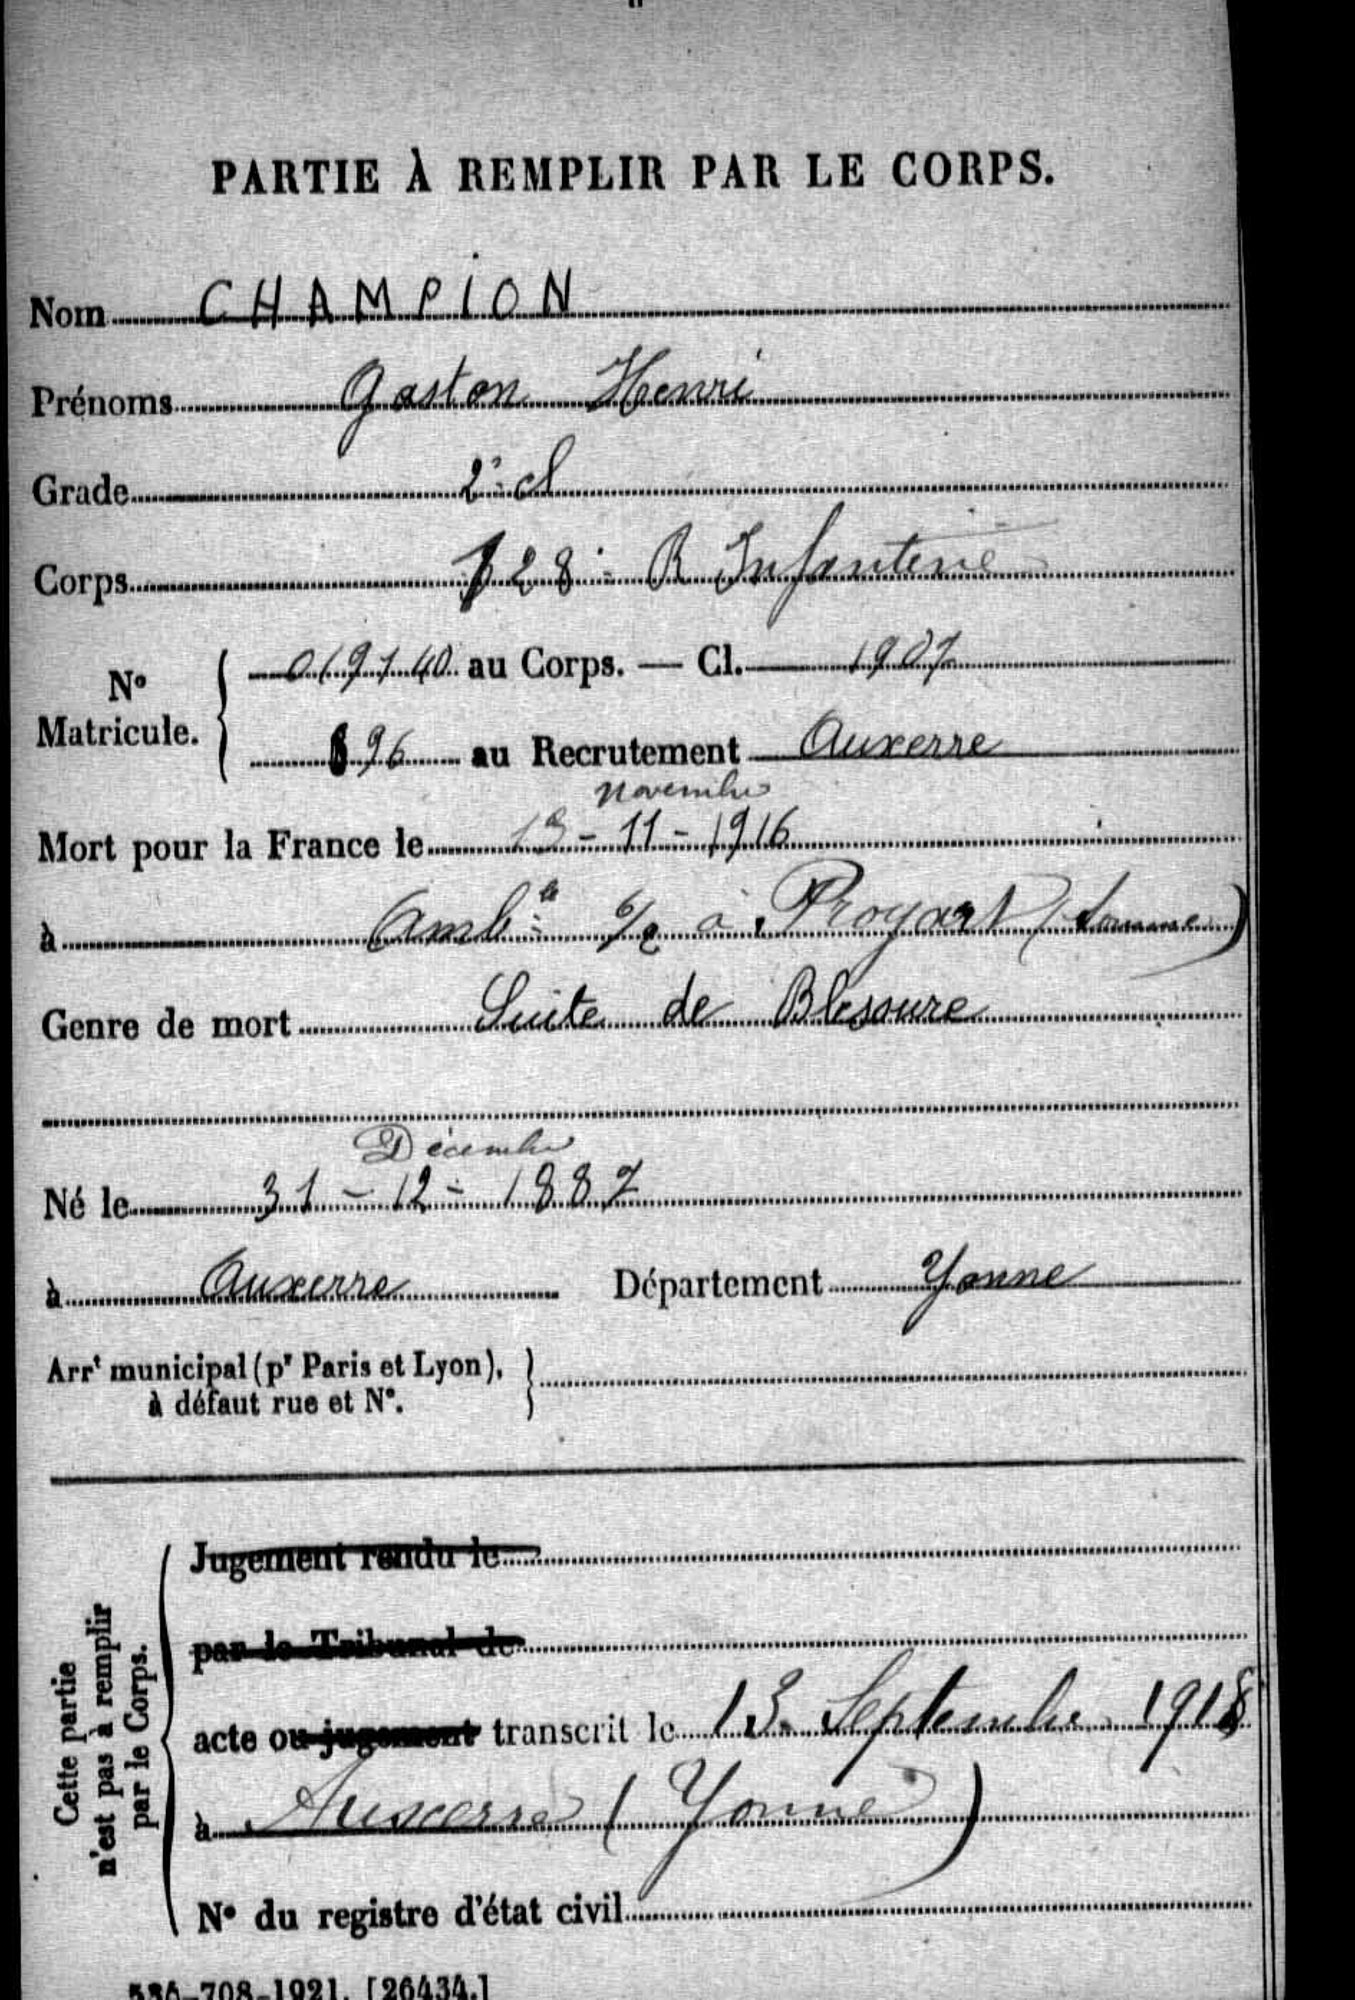 PARTIE À REMPLIR PAR LE CORPS.
Nom CHAMPION
Prénoms Gaston Henri
Grade 2e cl
Corps 128e R Infanterie
No Matricule. 019140 au Corps. — Cl. 1907
896 au Recrutement Auxerre
novembre
Mort pour la France le 13-11-1916
à Ambce à Proyart (Somme)
Genre de mort Suite de Blessure
Décembre
Né le 31-12-1887
à Auxerre Département Yonne
Arrt municipal (pr Paris et Lyon),
à défaut rue et No.
Cette partie
n'est pas à remplir
par le Corps.
Jugement rendu le
par le Tribunal de
acte ou jugement transcrit le 13 Septembre 1918
à Auxerre (Yonne)
No du registre d'état civil
534-708-1921. [26434.]